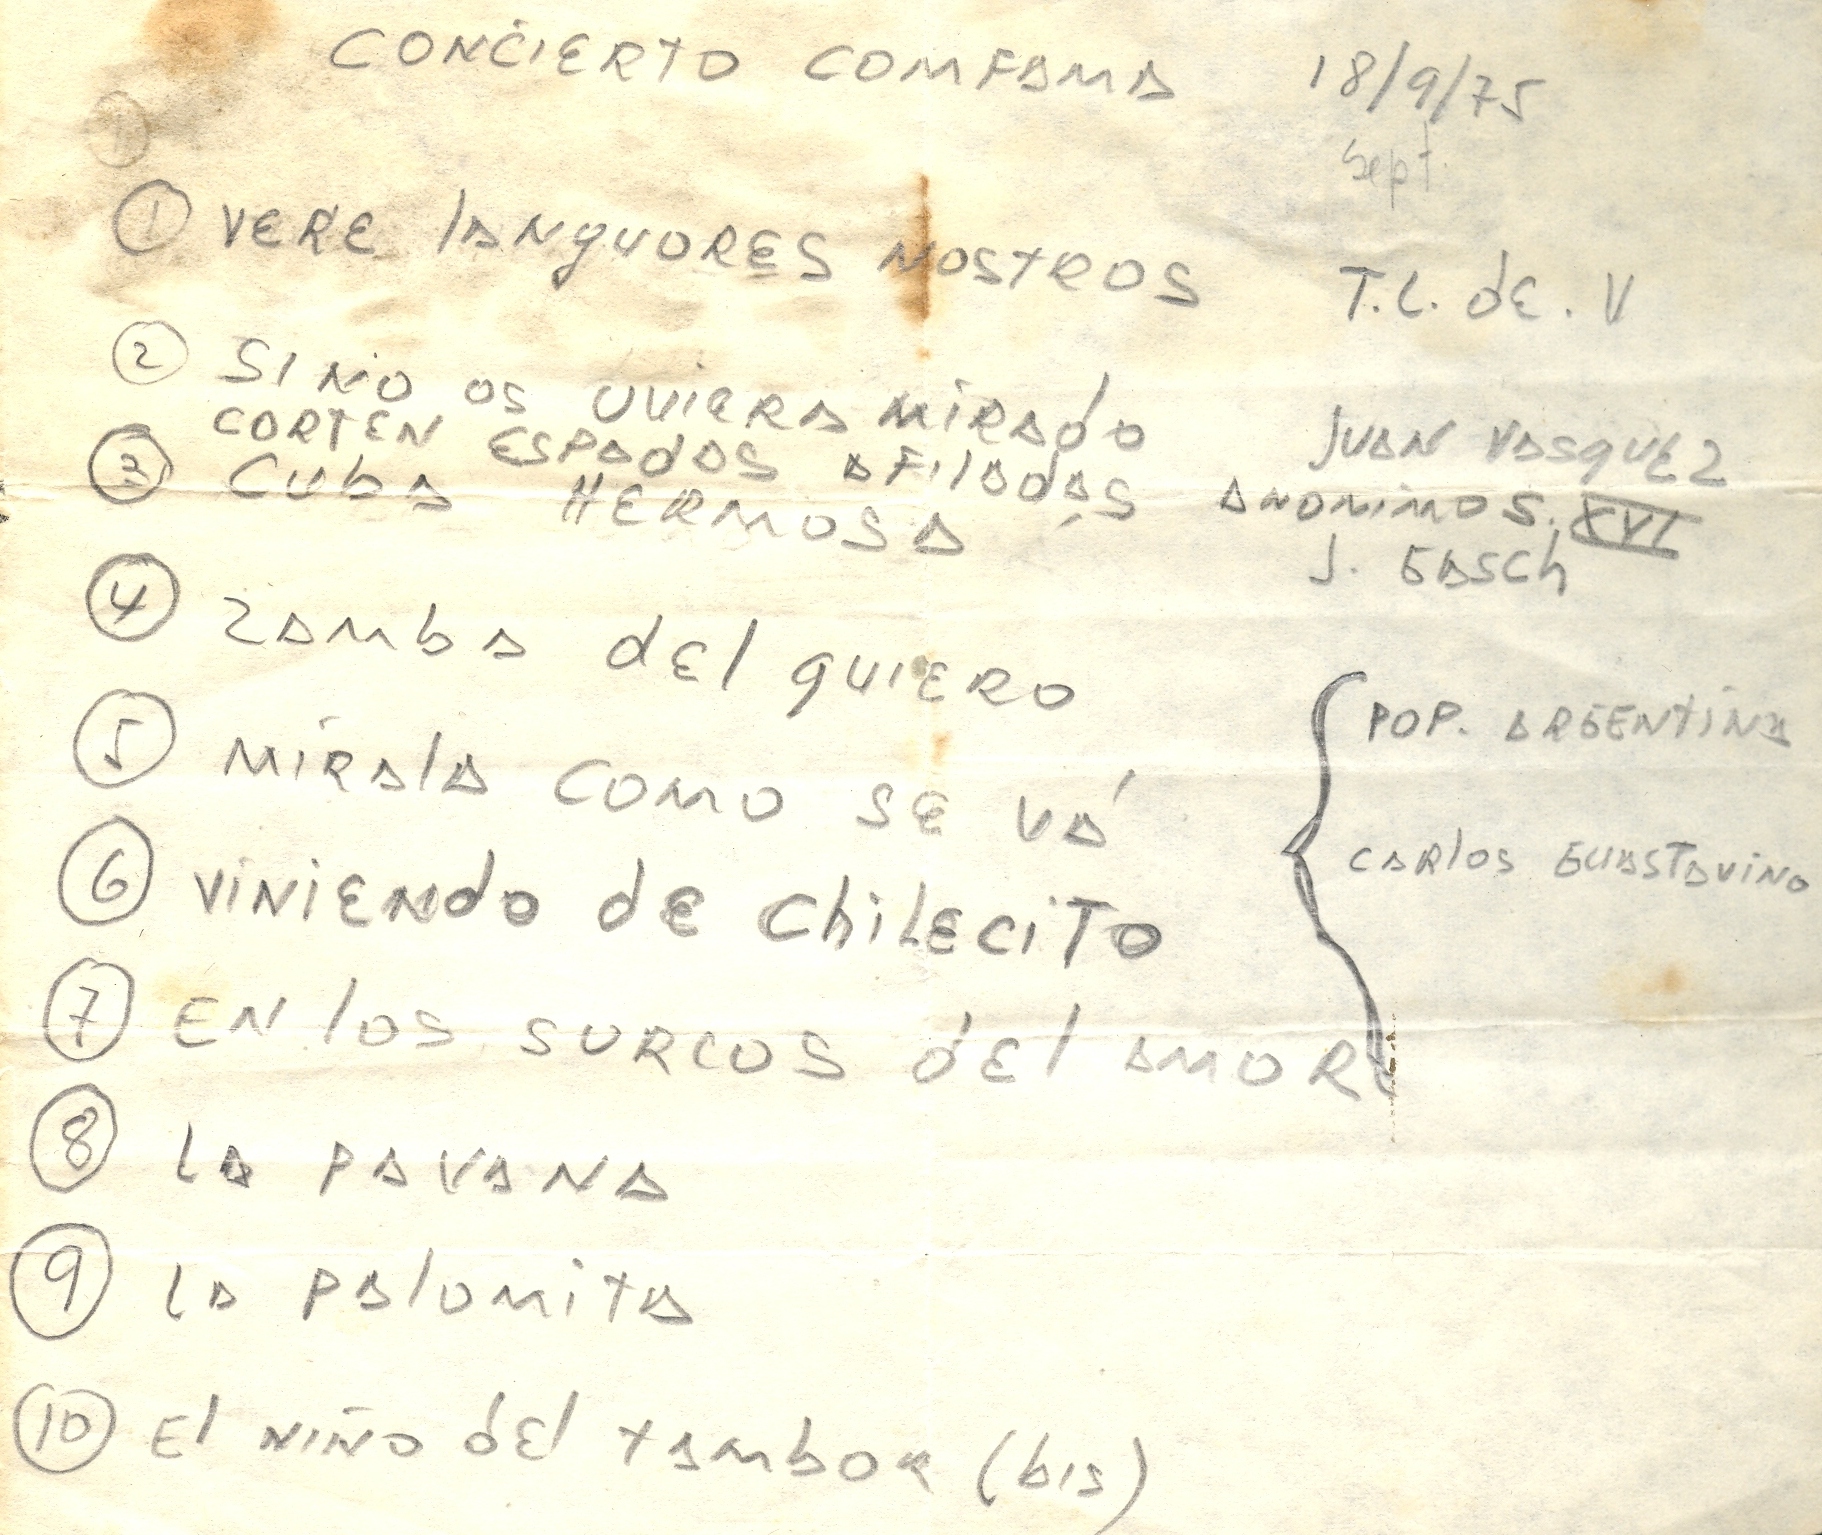 CONCIERTO COMFAMA 18/9/75
Sept.
① VERE LANGUORES NOSTROS T.L. DE. V
② SI NO OS UVIERA MIRADO JUAN VASQUEZ
CORTEN ESPADAS AFILADAS ANONIMO S. XVI
③ CUBA HERMOSA J. GASCH
④ ZAMBA DEL QUIERO
POP. ARGENTINA
⑤ MIRALA COMO SE VÁ
CARLOS GUASTAVINO
⑥ VINIENDO DE CHILECITO
⑦ EN LOS SURCOS DEL AMOR
⑧ LA PAVANA
⑨ LA PALOMITA
⑩ EL NIÑO DEL TAMBOR (bis)